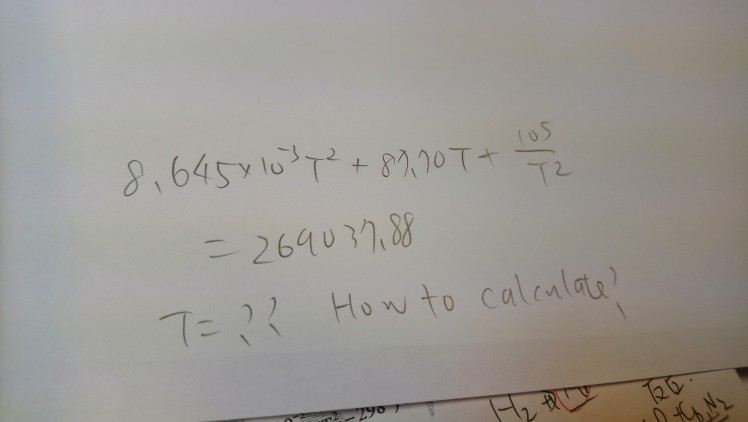 8.645×10⁻³T² + 87.70T + 105/T2
= 269037.88
T = ?? How to calculate?